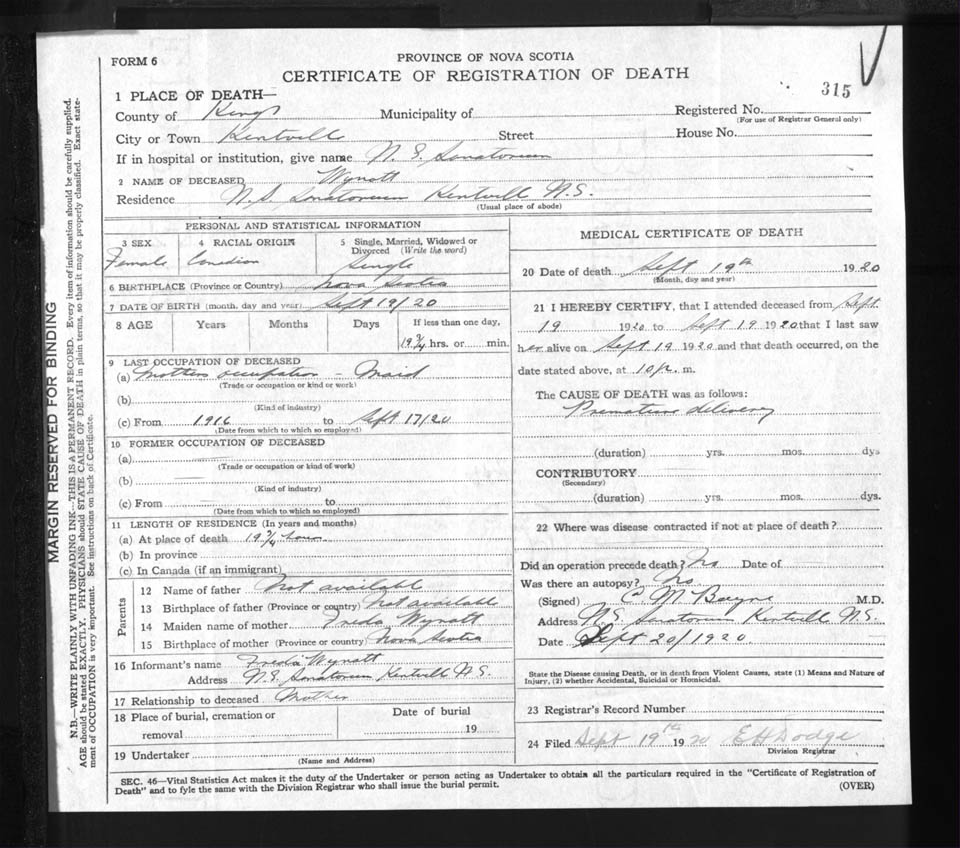 FORM 6
PROVINCE OF NOVA SCOTIA
CERTIFICATE OF REGISTRATION OF DEATH
315
1 PLACE OF DEATH—
County of Kings Municipality of Registered No.
(For use of Registrar General only)
City or Town Kentville Street House No.
If in hospital or institution, give name N. S. Sanatorium
2 NAME OF DECEASED Wynott
Residence N.S. Sanatorium Kentvill N.S.
(Usual place of abode)
PERSONAL AND STATISTICAL INFORMATION
3 SEX 4 RACIAL ORIGIN 5 Single, Married, Widowed or Divorced (Write the word)
Female Canadian Single
6 BIRTHPLACE (Province or Country) Nova Scotia
7 DATE OF BIRTH (month, day and year) Sept 19/20
8 AGE Years Months Days If less than one day,
19 3/4 hrs. or min.
9 LAST OCCUPATION OF DECEASED
(a) Mothers occupation - Maid
(Trade or occupation or kind or work)
(b)
(Kind of industry)
(c) From 1916 to Sept 17/20
(Date from which to which so employed)
10 FORMER OCCUPATION OF DECEASED
(a)
(Trade or occupation or kind of work)
(b)
(Kind of industry)
(c) From to
(Date from which to which so employed)
11 LENGTH OF RESIDENCE (In years and months)
(a) At place of death 19 3/4 hours
(b) In province
(c) In Canada (if an immigrant)
Parents
12 Name of father Not available
13 Birthplace of father (Province or country) Not available
14 Maiden name of mother Freda Wynott
15 Birthplace of mother (Province or country) Nova Scotia
16 Informant's name Freda Wynott
Address N.S. Sanatorium Kentvill N.S.
17 Relationship to deceased Mother
18 Place of burial, cremation or removal Date of burial
19
19 Undertaker
(Name and Address)
MEDICAL CERTIFICATE OF DEATH
20 Date of death Sept 19th 1920
(Month, day and year)
21 I HEREBY CERTIFY, that I attended deceased from Sept
19 1920 to Sept 19 1920 that I last saw
her alive on Sept 19 1920 and that death occurred, on the
date stated above, at 10 p. m.
The CAUSE OF DEATH was as follows:
Premature delivery
(duration) yrs. mos. dys
CONTRIBUTORY
(Secondary)
(duration) yrs. mos. dys.
22 Where was disease contracted if not at place of death?
Did an operation precede death? No Date of
Was there an autopsy? No
(Signed) C M Bayne M.D.
Address N.S. Sanatorium Kentvill N.S.
Date Sept 20/1920
State the Disease causing Death, or in death from Violent Causes, state (1) Means and Nature of
Injury, (2) whether Accidental, Suicidal or Homicidal.
23 Registrar's Record Number
24 Filed Sept 19th 1920 E H Dodge
Division Registrar
SEC. 46—Vital Statistics Act makes it the duty of the Undertaker or person acting as Undertaker to obtain all the particulars required in the "Certificate of Registration of
Death" and to fyle the same with the Division Registrar who shall issue the burial permit.
(OVER)
MARGIN RESERVED FOR BINDING
N.B.—WRITE PLAINLY WITH UNFADING INK—THIS IS A PERMANENT RECORD. Every item of information should be carefully supplied.
AGE should be stated EXACTLY. PHYSICIANS should STATE CAUSE OF DEATH in plain terms, so that it may be properly classified. Exact state-
ment of OCCUPATION is very important. See instructions on back of Certificate.